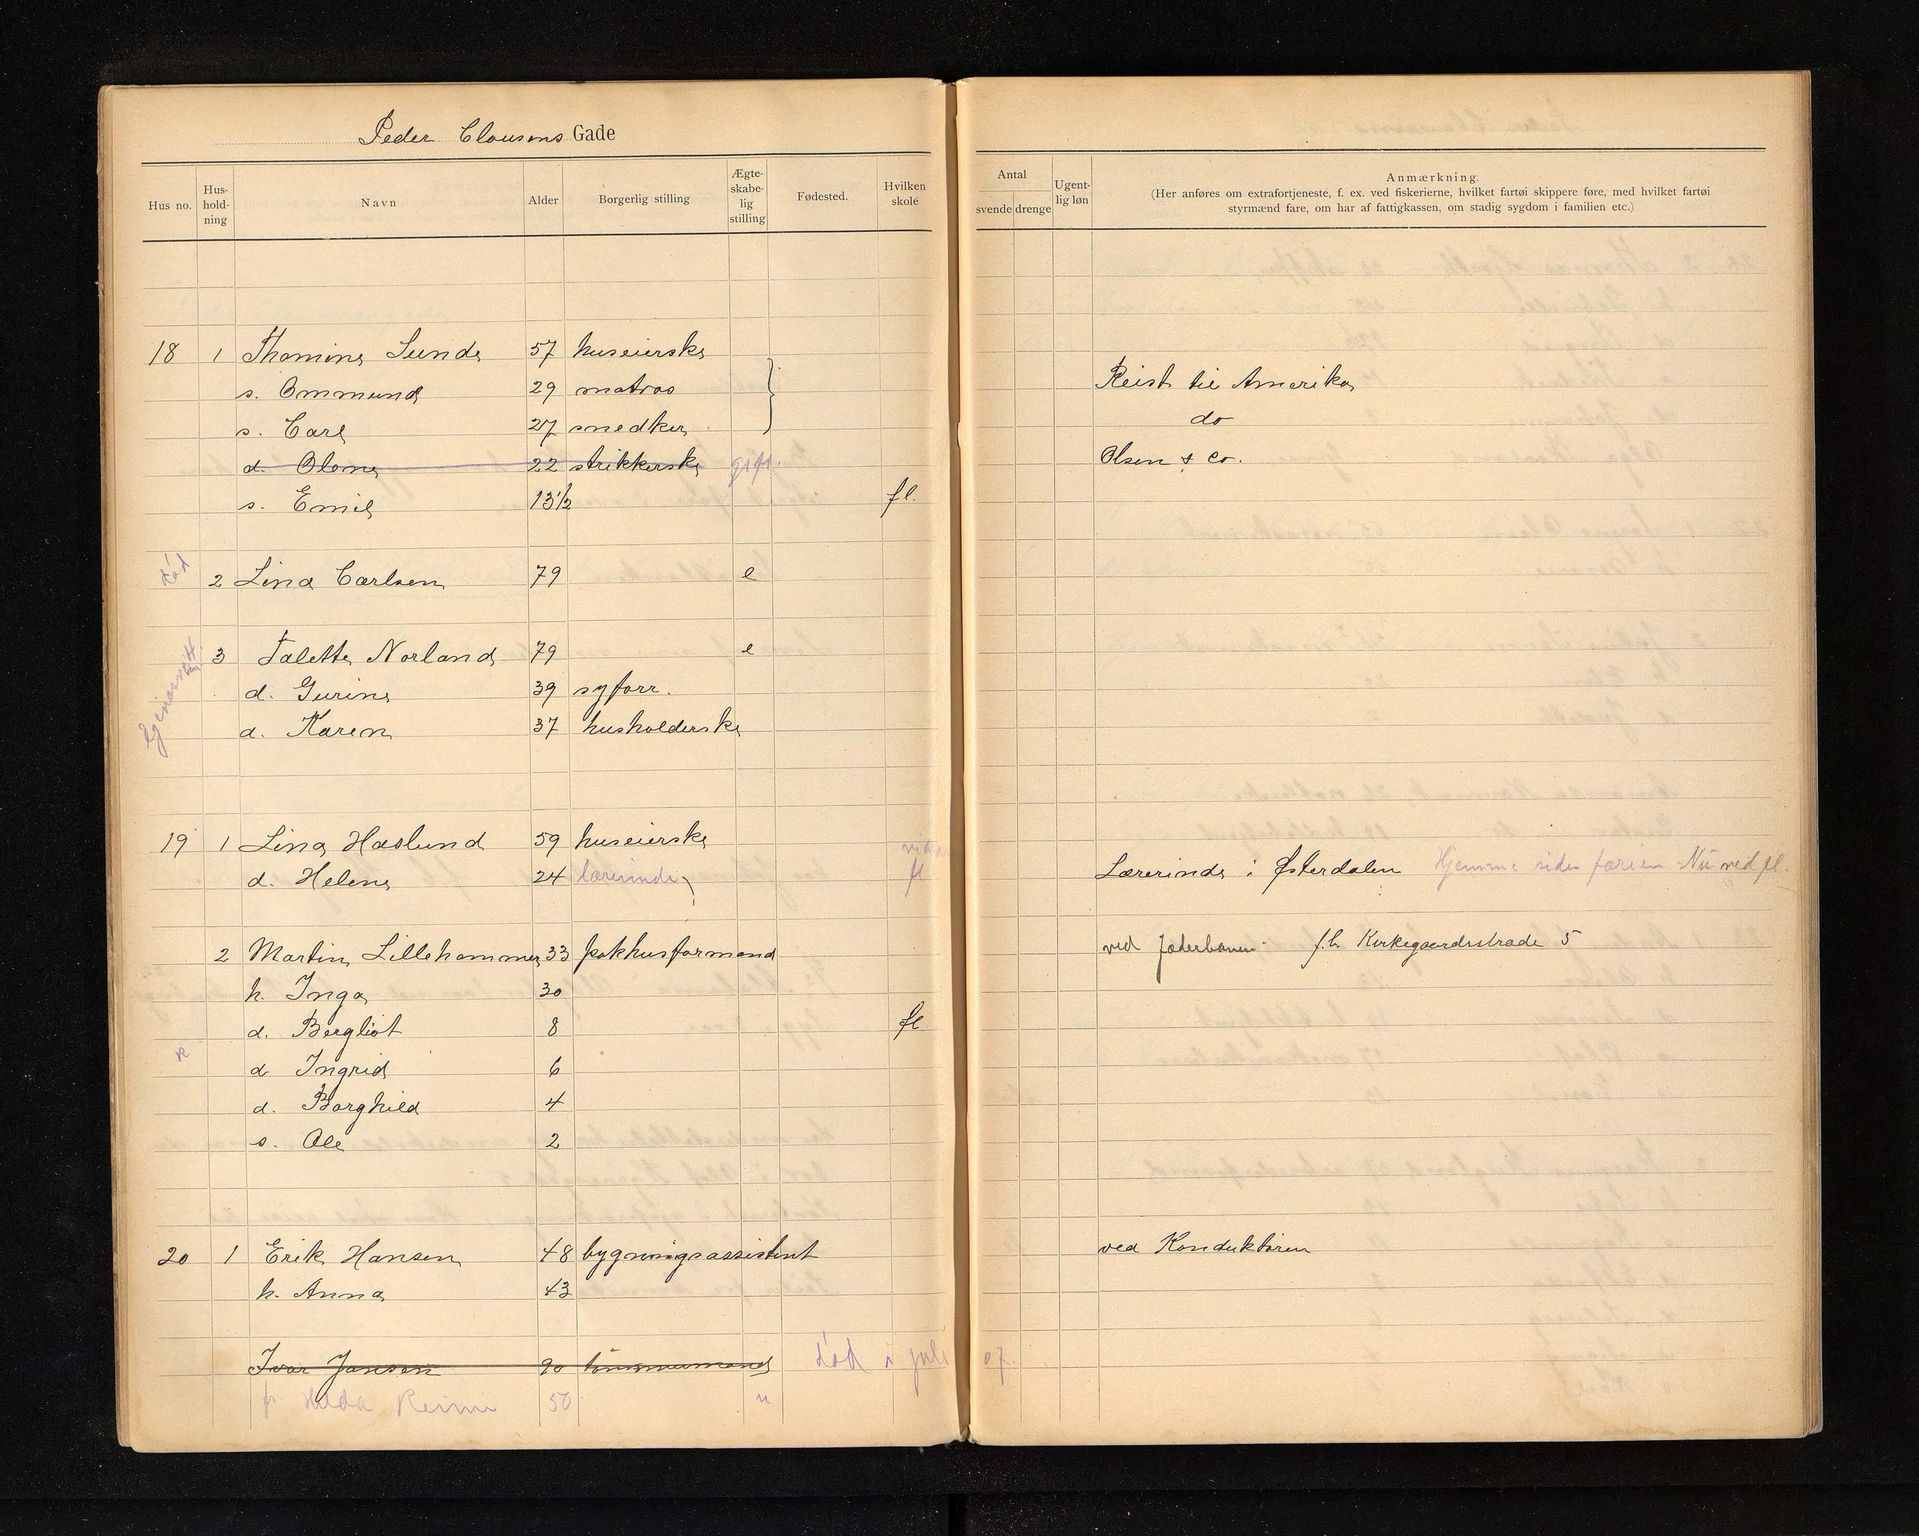 Peder Clausens Gade
Hus no. Hus- hold- ning Navn Alder Borgerlig stilling Ægte- skabe- lig stilling Fødested. Hvilken skole Antal svende drenge Ugent- lig løn Anmærkning.
(Her anføres om extrafortjeneste, f. ex. ved fiskerierne, hvilket fartøi skippere føre, med hvilket fartøi
styrmænd fare, om har af fattigkassen, om stadig sygdom i familien etc.)
18 1 Thomine Sunde 57 huseierske
s. Ommund 29 matros Reist til Amerika
s. Carl 27 snedker do
d. Olene 22 strikkerske gift. Olsen & Co.
s. Emil 13½ fl.
død 2 Lina Carlsen 79 e
3 Talette Norland 79 e
d. Gurine 39 syforr.
d. Karen 37 husholderske
19 1 Lina Haslund 59 huseierske
d. Helene 24 lærerinde fl Lærerinde i Østerdalen Hjemme siden færien Nu ved fl.
2 Martin Lillehammer 33 pakhusformand ved Jæderbanen. f.b. Kirkegaardsstrade 5
h. Inga 30
d. Bergliot 8 fl
d. Ingrid 6
d. Borghild 4
s. Ole 2
20 1 Erik Hansen 48 bygningsassistent ved Konduktøren
h. Anna 43
Ivar Jansen 90 tømmermand død i juli 07.
fr Hilda Reime 50 u